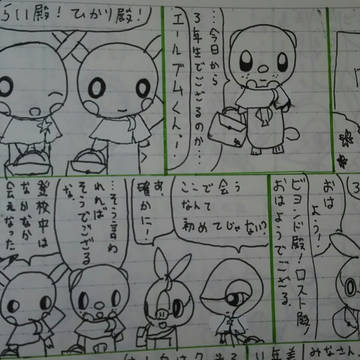 らい殿！ひかり殿！
エールブムくんー！
…今日から
3年生でござるのか…
おは
よう！
ビヨンド殿！ロスト殿！
おはようでござる。
ここで会う
なんて
初めてじゃない？
あ、
確かに！
…そう言わ
れれば
そうでござる
な。
登校中は
なかなか
会えなかった
みなさん